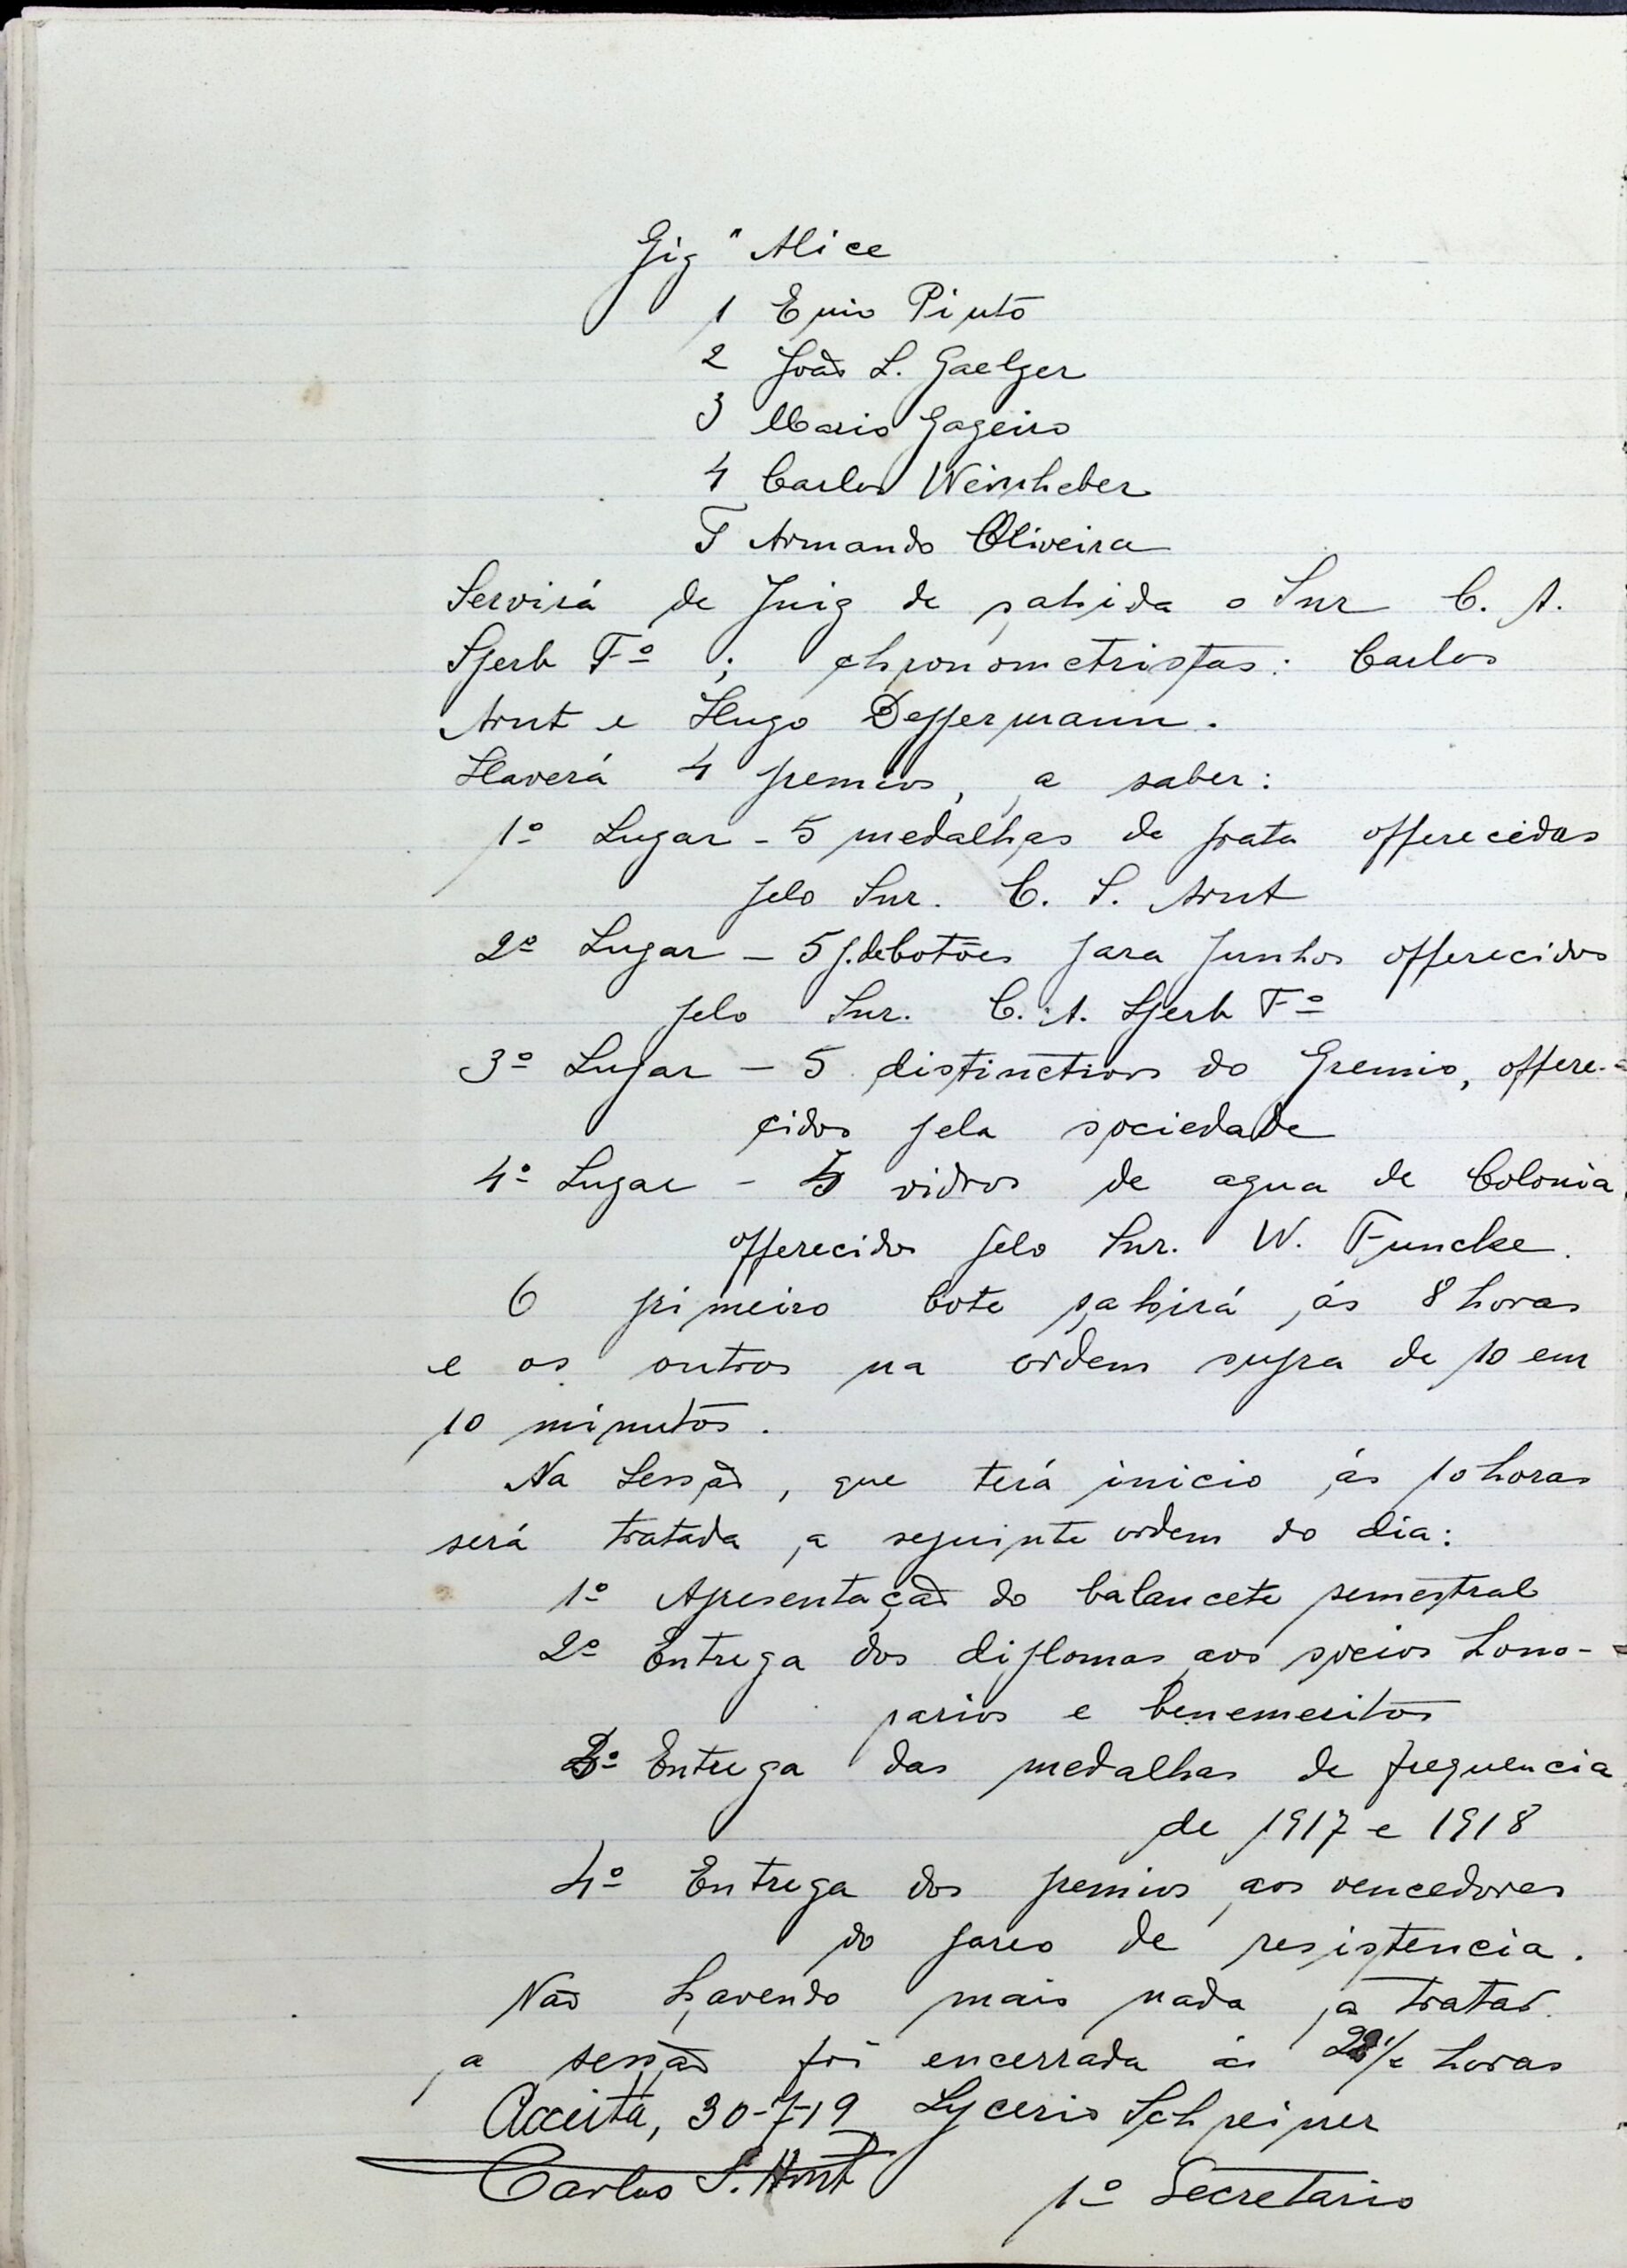 Gig "Alice
1 Enio Pinto
2 João L. Gaelzer
3 Mario Gageiro
4 Carlos Weinheber
T Armando Oliveira
Servirá de Juiz de sahida o Snr C. A.
Sperb Fº ; chronometristas: Carlos
Arnt e Hugo Deppermann.
Haverá 4 premios, a saber:
1º Lugar - 5 medalhas de prata offerecidas
pelo Snr. C. S. Arnt
2º Lugar - 5 p. de botões para punhos offerecidos
pelo Snr. C. A. Sperb Fº
3º Lugar - 5 distinctivos do Gremio, offere-
cidos pela sociedade
4º Lugar - 5 vidros de agua de Colonia
offerecidos pelo Snr. W. Funcke.
O primeiro bote sahirá ás 8 horas
e os outros na ordem supra de 10 em
10 minutos.
Na Sessão, que terá inicio ás 10 horas
será tratada a seguinte ordem do dia:
1º Apresentação do balancete semestral
2º Entrega dos diplomas aos socios hono-
rarios e benemeritos
3º Entrega das medalhas de frequencia
de 1917 e 1918
4º Entrega dos premios aos vencedores
do pareo de resistencia.
Não havendo mais nada a tratar
a sessão foi encerrada ás horas
Acceita, 30-7-19 Lyceris Schreiner
Carlos S. Arnt
1º Secretario